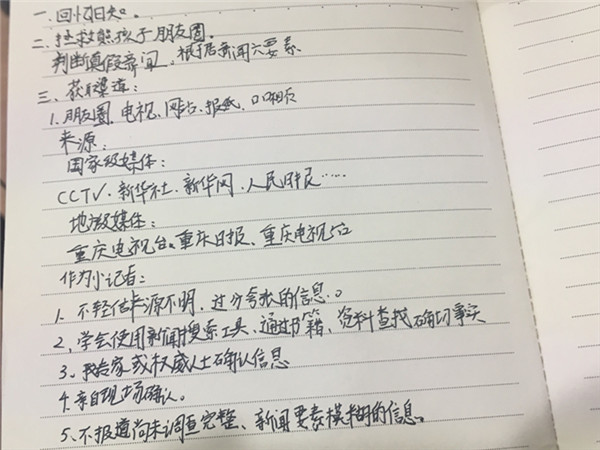 一.回忆旧知。
二.拯救熊孩子朋友圈。
判断真假新闻,根据新闻六要素
三、获取渠道:
1.朋友圈、电视、网站、报纸、口口相传
来源:
国家级媒体:
CCTV、新华社、新华网、人民日报……
地方级媒体:
重庆电视台、重庆日报、重庆电视
作为小记者:
1、不轻信来源不明、过分夸张的信息。
2、学会使用新闻搜索工具、通过书籍、资料查找确切事实
3、找专家或权威人士确认信息
4.亲自现场确认。
5、不报道尚未调查完整、新闻要素模糊的信息。